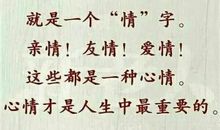 就是一个“情”字。
亲情！友情！爱情！
这些都是一种心情。
心情才是人生中最重要的。